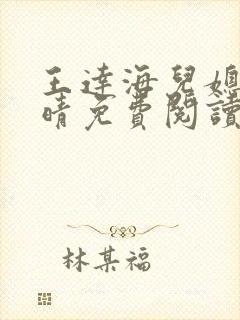 王達海兒媳
晴免費閱讀
林某福